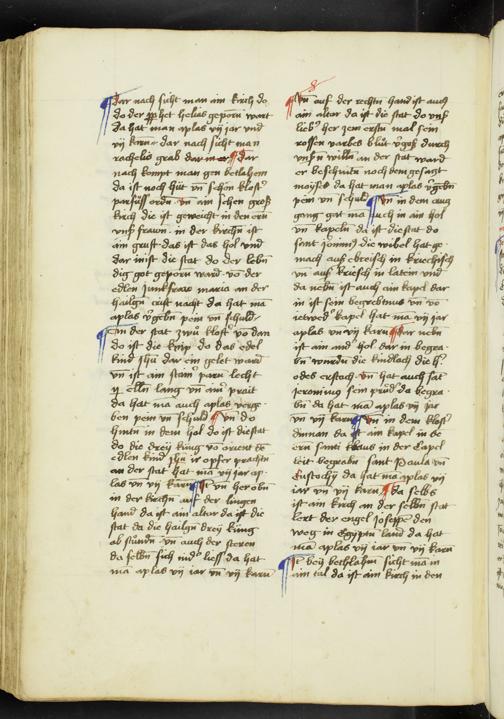 dar nach sicht man ain kirch do
do der pphet helias geporn wart
da hat man aplas vij jar vnd
vij karn dar nach sicht man
rachelis grab dar
nach kompt man gen bethlahem
da ist noch hüt vn schön klost
parfüss ordn vn ain schön groß
kirch die ist geweicht in den ern
vnß frawn in der kirchn ist
ain gruft das ist das hol vnd
dar inn ist die stat do der lebn
dig got geporn ward vo der
edlen junkfraw maria an der
hailgn crist nacht da hat ma
aplas vgebn pein vn schuld
an der stat zwu klost po dan
do ist die krip do das edel
kind jhu dar ein gelet ward
vn ist am stain paru lecht
ij elln lang vn ain prait
da hat ma auch aplas verge
ben pein vn schuld vn do
hintn in dem hol do ist die stat
do die dreÿ küng vo orient de
edlen kind jhu ir opfer prachtn
an der stat hat ma vij jar ap
las vn vij karn vn her obn
in der kirchn auf der lingen
hand da ist ain altar da ist die
stat da die hailgn dreÿ küng
ab stundn vn auch der steren
da selbn sich liess da hat
ma aplas vij jar vn vij karn
vn auf der rechtn hand ist auch
ain altar da ist die stat do vnß
lieb her zem erstn mal sein
rossen varbes blüt vgoß durch
vnßn willn an der stat ward
er beschnitn noch dem gesazt
moÿses da hat man aplas vgebn
pein vn schuld vn in dem crüg
gang get ma auch in ain hol
vn kapeln da ist die stat do
sant die wibel hat ge
mach auß ebreisch in kriechisch
vn auß kriesch in latein vnd
da nebn ist auch ain kapel dar
in ist sein begrebtnus vn vo
ietwed kapel hat ma vij jar
aplas vn vij karn dar nebn
ist ain and hol dar in begra
bn wurdn die kindlach die h
odes erstach vn hat auch sat
jeronimg sein begra
bn da hat ma aplas vij jar
vn vij karn vn in dem klost
dinnan da ist ain kapel in de
ern santi klaus in der Capel
leit begrabn sant Paula vn
Eustochÿ da hat ma aplas vij
jar vn vij karn da selbs
ist ain kirch an der selbn stat
lert der engel josepp den
weg in Egÿptn land da hat
ma aplas vij jar vn vij karn
It beÿ bethlahm sicht ma in
ain tal da ist ain kirch in den